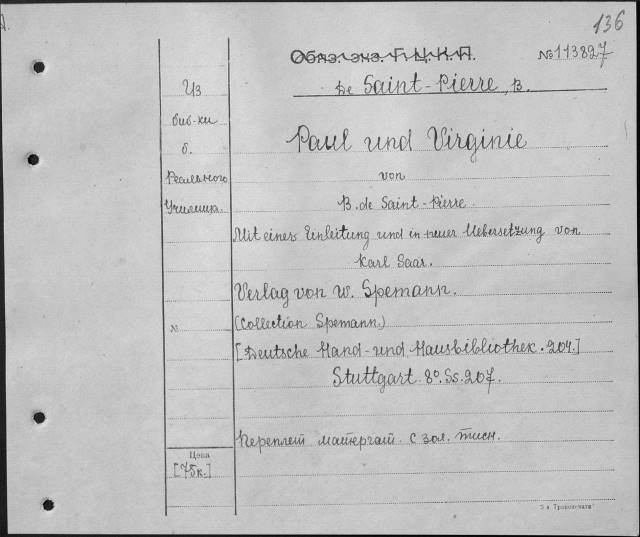 136
Обяз. экз. Г.Ц.К.П.
№113827
De Saint-Pierre, B.
Из
биб-ки
б.
Реального
Училища.
Paul und Virginie
von
B. de Saint-Pierre.
Mit einer Einleitung und in neuer Uebersetzung von
Karl Saar.
Verlag von W. Spemann.
№
(Collection Spemann.)
[Deutsche Hand- und Hausbibliothek. 204.]
Stuttgart 8°. Ss. 207.
Переплет с зол. тисн.
Цена
[75к.]